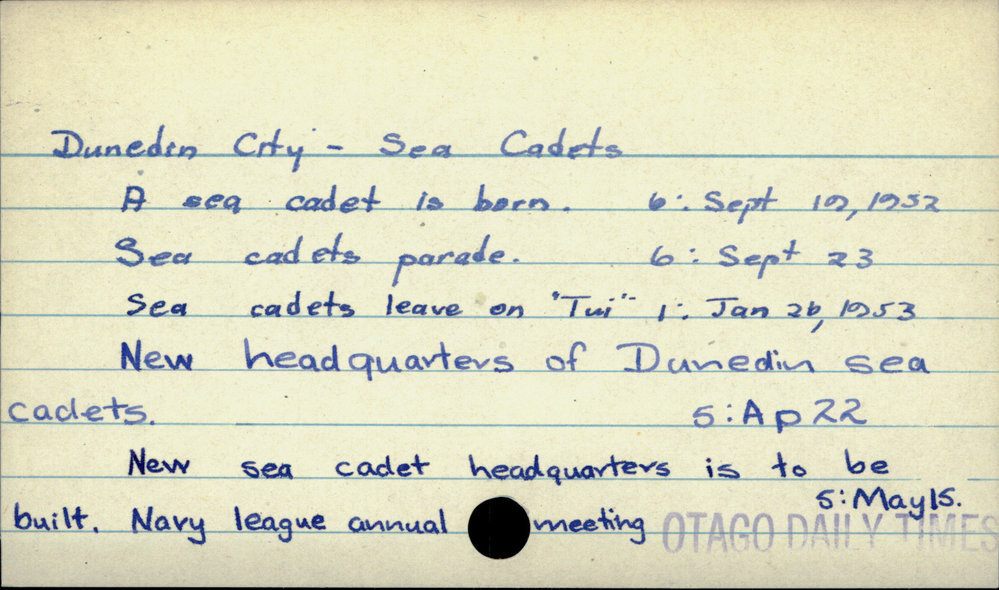 Dunedin City - Sea Cadets
A sea cadet is born. 6: Sept 19, 1952
Sea cadets parade. 6: Sept 23
Sea cadets leave on "Tui" 1: Jan 26, 1953
New headquarters of Dunedin sea
cadets. 5: Ap 22
New sea cadet headquarters is to be
built. Navy league annual meeting 5: May 15.
OTAGO DAILY TIMES